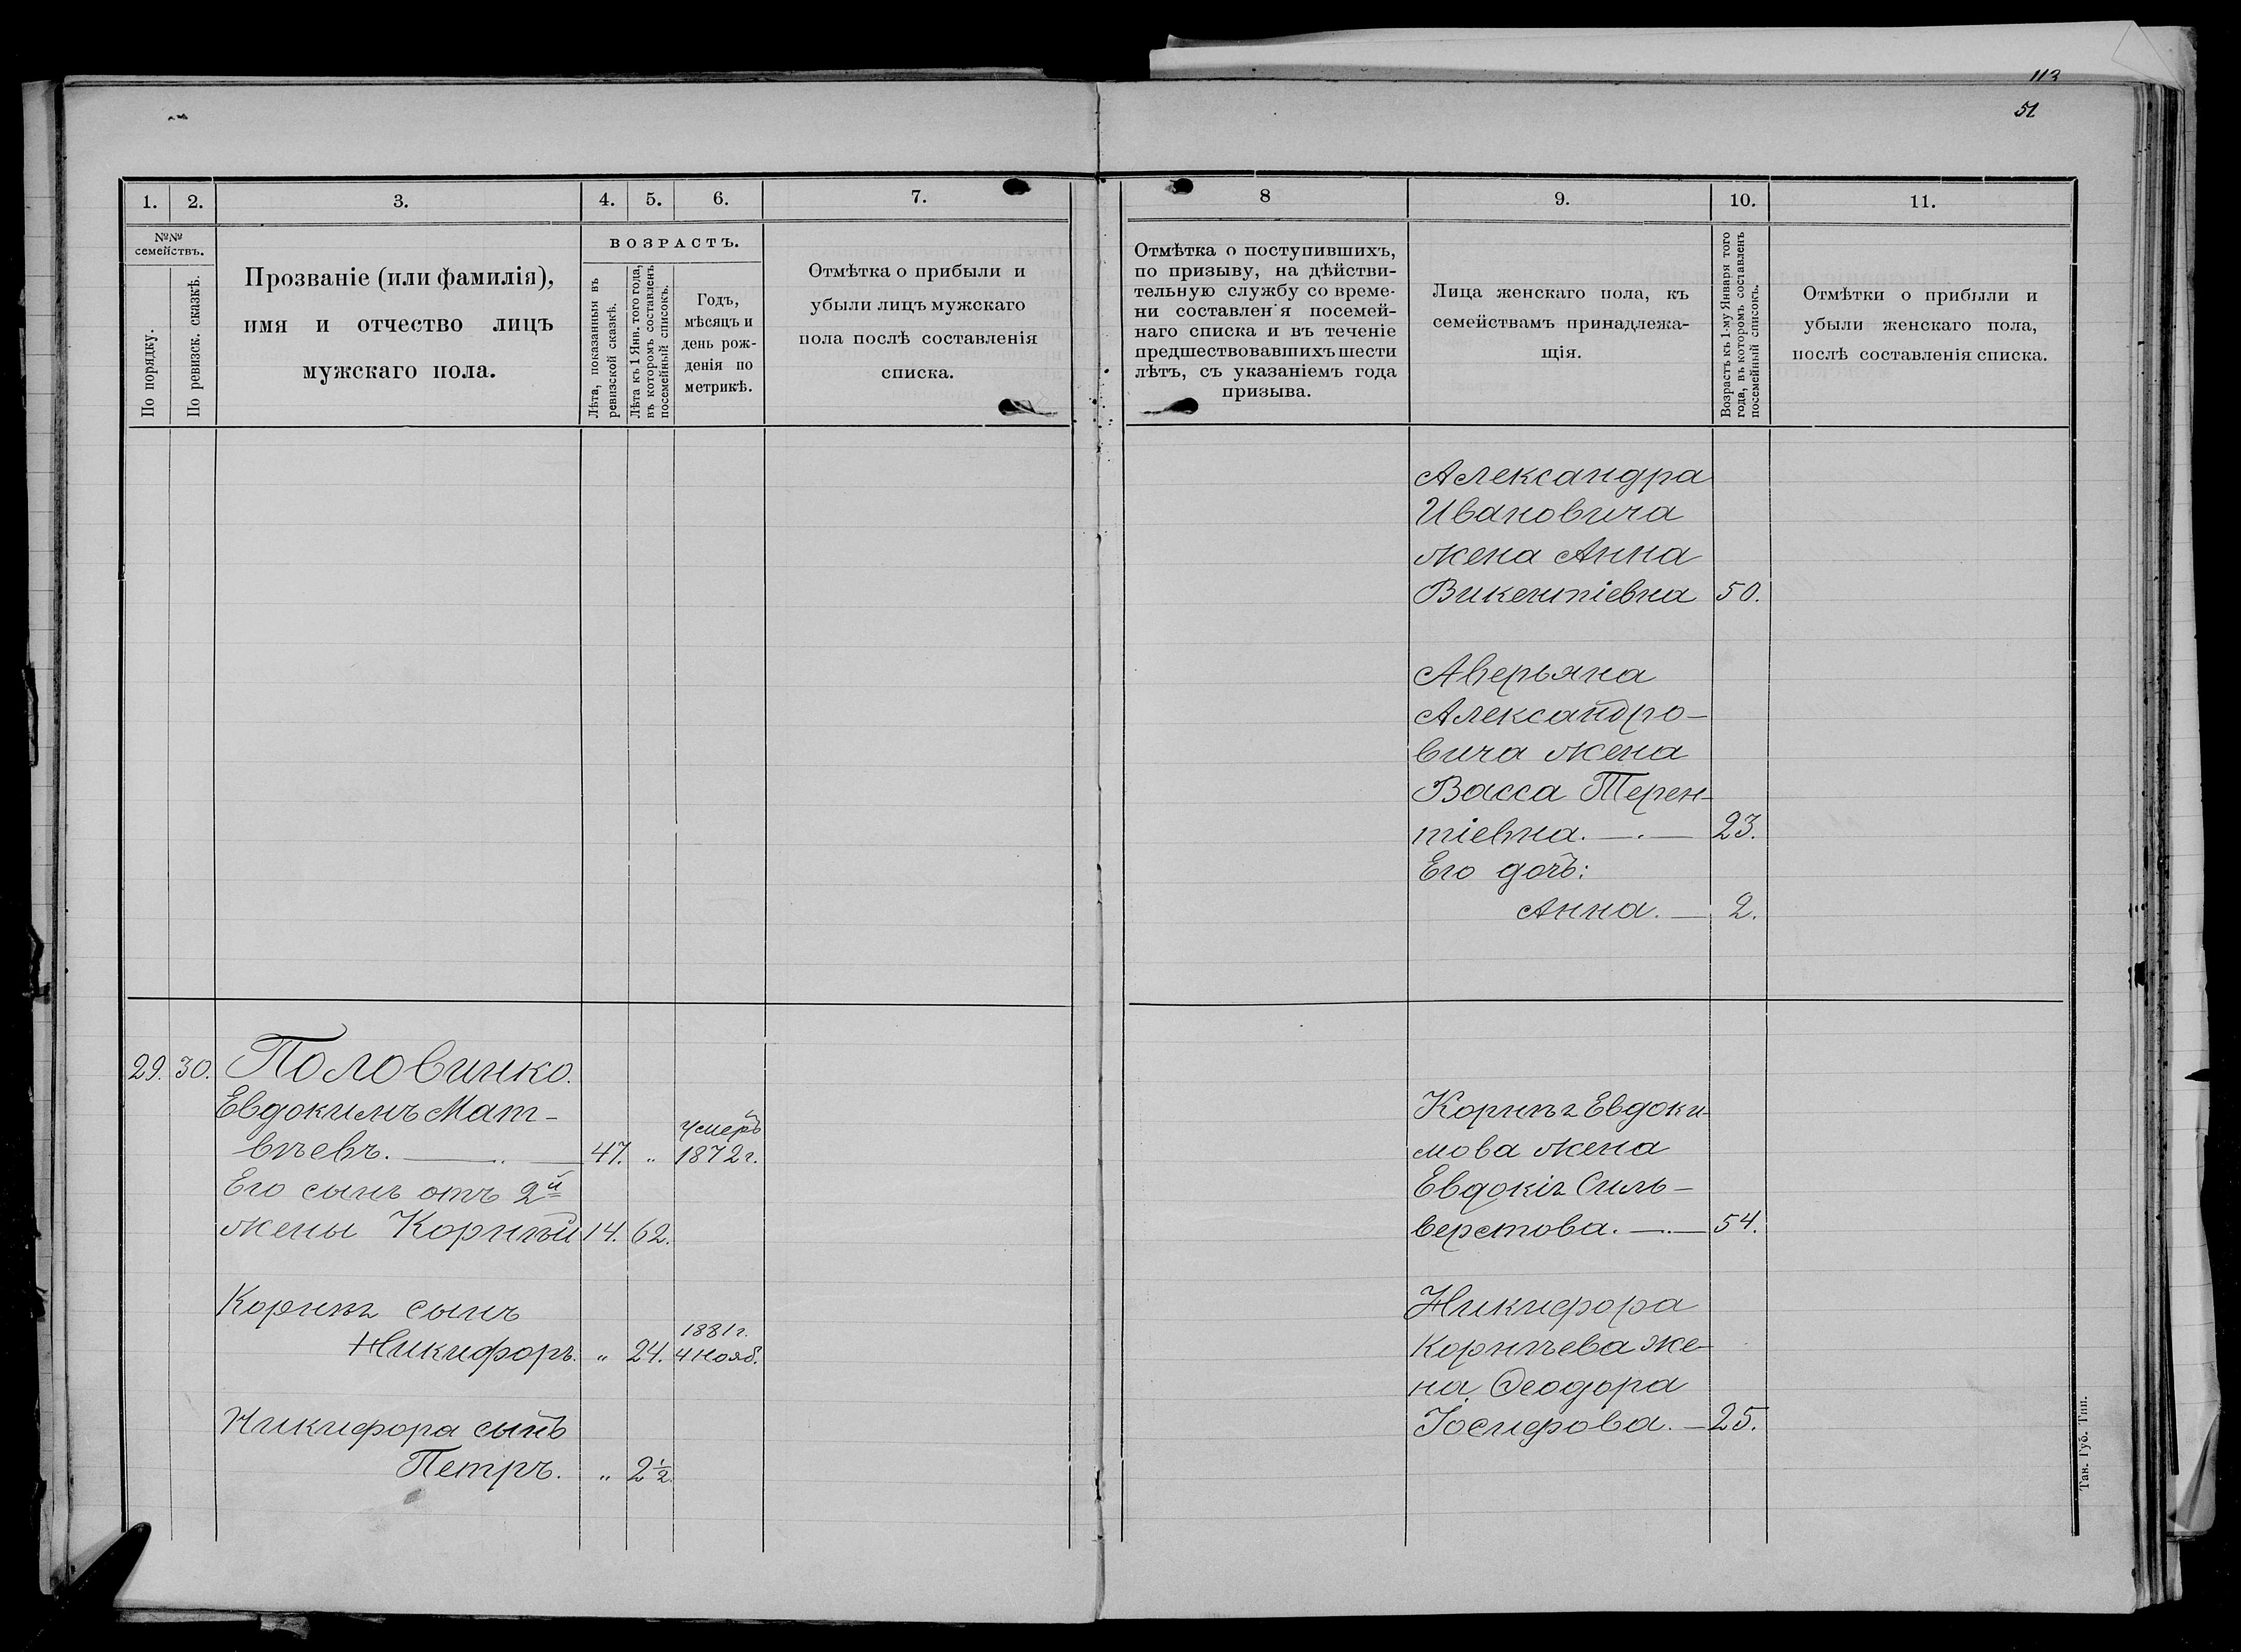 113
51
1.
2.
3.
4.
5.
6.
7.
№№ семействъ.
По порядку.
По ревизск. сказкѣ.
Прозваніе (или фамилія),
имя и отчество лицъ
мужскаго пола.
ВОЗРАСТЪ.
Лѣта, показанныя въ
ревизской сказкѣ.
Лѣта къ 1 Янв. того года,
въ которомъ составленъ
посемейный списокъ.
Годъ,
мѣсяцъ и
день рож-
денія по
метрикѣ.
Отмѣтка о прибыли и
убыли лицъ мужскаго
пола послѣ составленія
списка.
29. 30. Половинко.
Евдокимъ Мат-
умеръ
вѣевъ. 47. „ 1872 г.
Его сынъ отъ 2й
жены Корнѣй 14. 62.
Корнѣя сынъ
1881 г.
Никифоръ. „ 24. 4 Нояб.
Никифора сынъ
Петръ. „ 2½.
8
9.
10.
11.
Отмѣтка о поступившихъ,
по призыву, на дѣйстви-
тельную службу со време-
ни составленія посемей-
наго списка и въ теченіе
предшествовавшихъ шести
лѣтъ, съ указаніемъ года
призыва.
Лица женскаго пола, къ
семействамъ принадлежа-
щія.
Возрастъ къ 1-му Января того
года, въ которомъ составленъ
посемейный списокъ.
Отмѣтки о прибыли и
убыли женскаго пола,
послѣ составленія списка.
Александра
Ивановича
жена Анна
Викентіевна 50.
Аверьяна
Александро-
вича жена
Васса Терен-
тіевна. 23.
Его дочь:
Анна. 2.
Корнѣя Евдоки-
мова жена
Евдокія Силь-
верстова. 54.
Никифора
Корнѣева же-
на Ѳеодора
Іосифова. 25.
Тав. Губ. Тип.